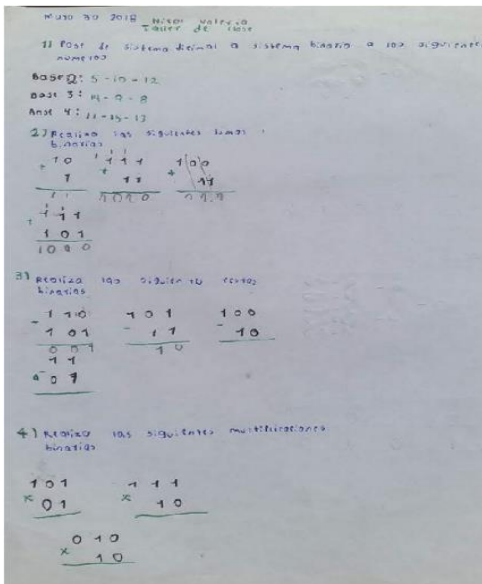 Mayo 30 2018
Taller de clase
1) Pase de sistema decimal a sistema binario a los siguientes
numeros
Base 2: 5-10-12
Base 3: 14-9-8
Base 4:
2) Realiza las siguientes sumas
binarias
+ 10 + 111 + 100
1 11 11
11 1010 111
+ 111
101
3) Realiza las siguientes restas
binarias
- 110 - 101 - 100
101 11 10
001 10
11
01
4) Realiza las siguientes multiplicaciones
binarias
101 111
x 01 x 10
010
x 10